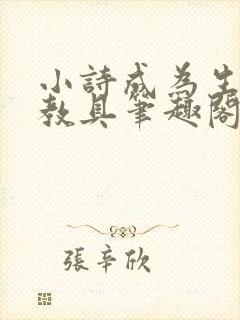 小詩成為生
教具筆趣閣
張辛欣